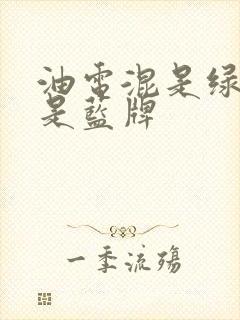 油电混是绿
是蓝牌
一季流殇